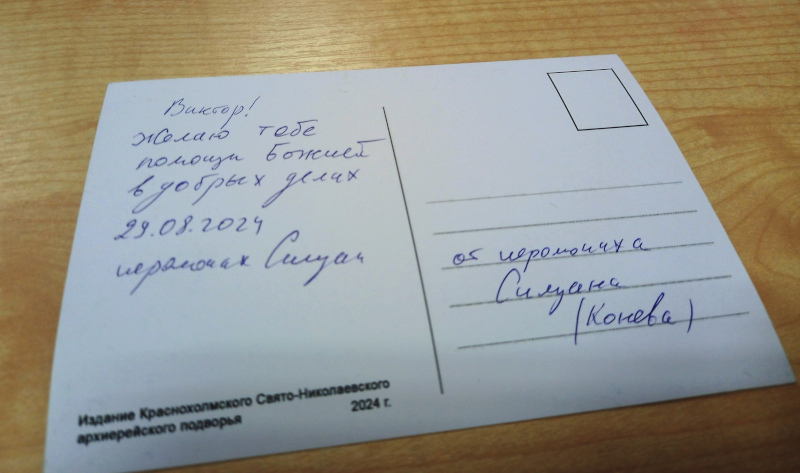 Виктор!
Желаю тебе
помощи Божией
в добрых делах
29.08.2024
иеромонах Силуан
от иеромонаха
Силуана
(Конева)
Издание Краснохолмского Свято-Николаевского
архиерейского подворья
2024 г.